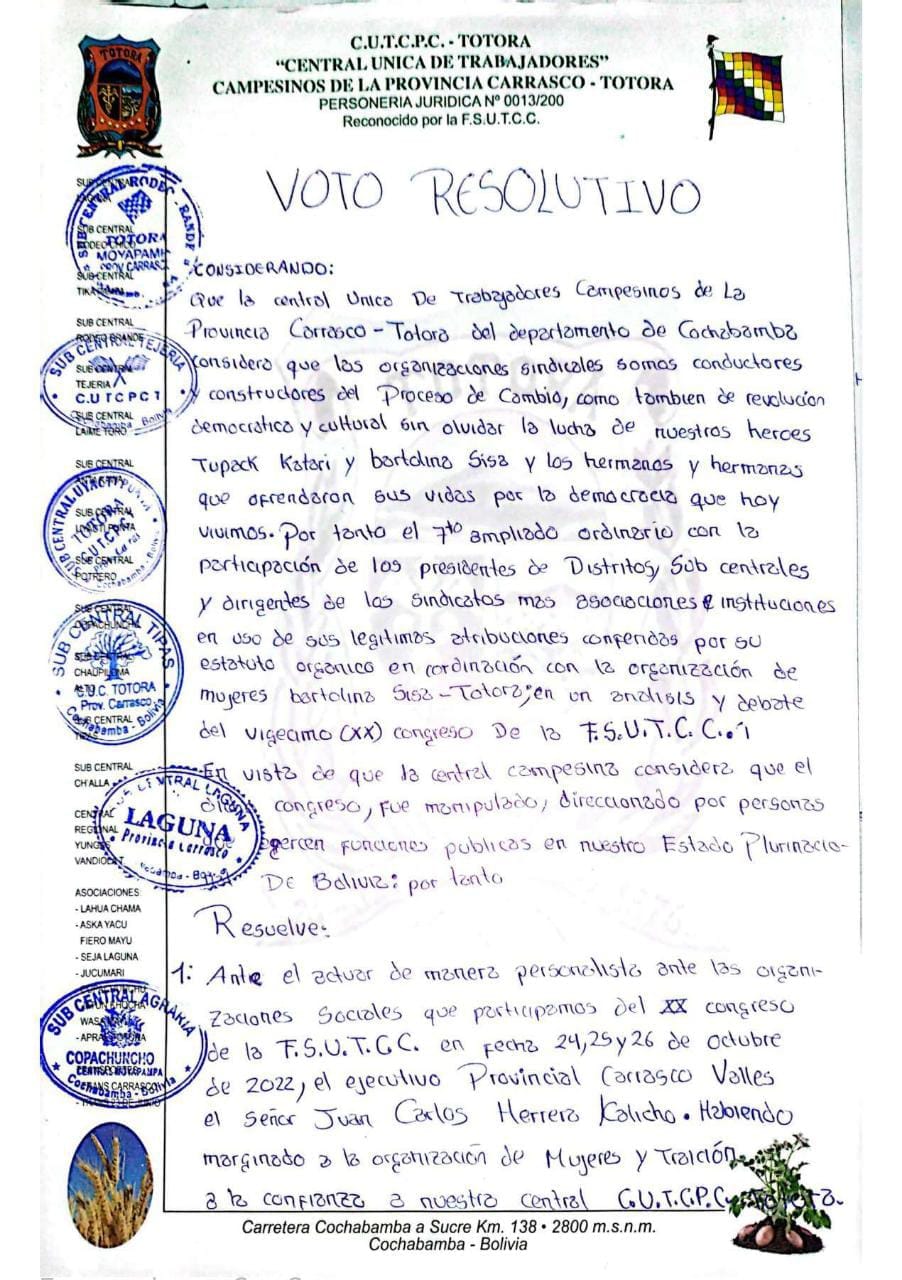 C.U.T.C.P.C. - TOTORA
“CENTRAL UNICA DE TRABAJADORES”
CAMPESINOS DE LA PROVINCIA CARRASCO - TOTORA
PERSONERIA JURIDICA Nº 0013/200
Reconocido por la F.S.U.T.C.C.
TOTORA
VOTO RESOLUTIVO
CONSIDERANDO:
Que la central Unica De Trabajadores Campesinos de La
Provincia Carrasco - Totora del departamento de Cochabamba
considera que las organizaciones sindicales somos conductores
y constructores del Proceso de Cambio, como tambien de revolucion
democratica y cultural sin olvidar la lucha de nuestros heroes
Tupack Katari y bartolina Sisa y los hermanos y hermanas
que ofrendaron sus vidas por la democracia que hoy
vivimos. Por tanto el 7to ampliado ordinario con la
participación de los presidentes de Distritos, Sub centrales
y dirigentes de los sindicatos mas asociaciones e instituciones
en uso de sus legitimas atribuciones conferidas por su
estatuto organico en cordinación con la organización de
mujeres bartolina Sisa - Totora; en un analisis y debate
del vigecimo (XX) congreso De la F.S.U.T.C.C.
En vista de que la central campesina considera que el
congreso, fue manipulado, direccionado por personas
ejercen funciones publicas en nuestro Estado Plurinacio-
De Bolivia: por tanto
Resuelve:
1: Ante el actuar de manera personalista ante las organi-
zaciones Sociales que participamos del XX congreso
de la F.S.U.T.C.C. en fecha 24, 25 y 26 de Octubre
de 2022, el ejecutivo Provincial Carrasco Valles
el Señor Juan Carlos Herrera Kalicho. Habiendo
marginado a la organización de Mujeres y Traición
a la confianza a nuestra central C.U.T.C.P.C. Totora.
SUB CENTRAL RODEO GRANDE
TOTORA
MOYAPAMPA
SUB CENTRAL
SUB CENTRAL
TIKA
SUB CENTRAL
RODEO GRANDE
SUB CENTRAL TEJERIA
TEJERIA
C.UTCPCT
SUB CENTRAL
LAIME TORO
SUB CENTRAL
TOTORA
C.U.T.C.P.C.
SUB CENTRAL
POTRERO
Cochabamba
SUB CENTRAL TIPAS
CHAUPILOMA
C.U.C. TOTORA
Prov. Carrasco
Cochabamba - Bolivia
SUB CENTRAL
CH'ALLA
SUB CENTRAL LAGUNA
LAGUNA
Provincia Carrasco
CENTRAL
REGIONAL
YUNGAS
VANDIOLA
ASOCIACIONES
- LAHUA CHAMA
- ASKA YACU
FIERO MAYU
- SEJA LAGUNA
- JUCUMARI
SUB CENTRAL AGRARIA
COPACHUNCHO
CENTRAL MOYAPAMPA
Cochabamba - Bolivia
TRANS CARRASCO
Carretera Cochabamba a Sucre Km. 138 • 2800 m.s.n.m.
Cochabamba - Bolivia